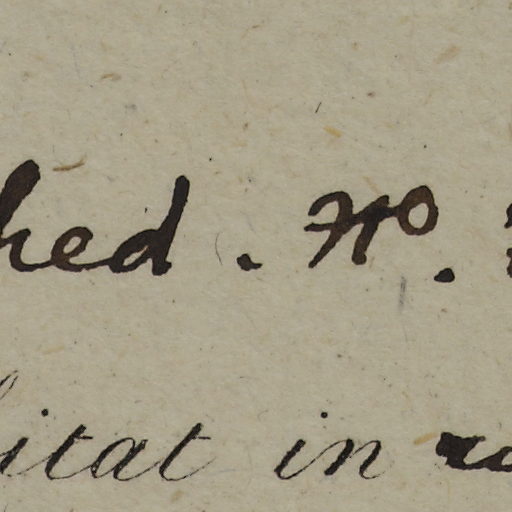 hed. No.
itat in